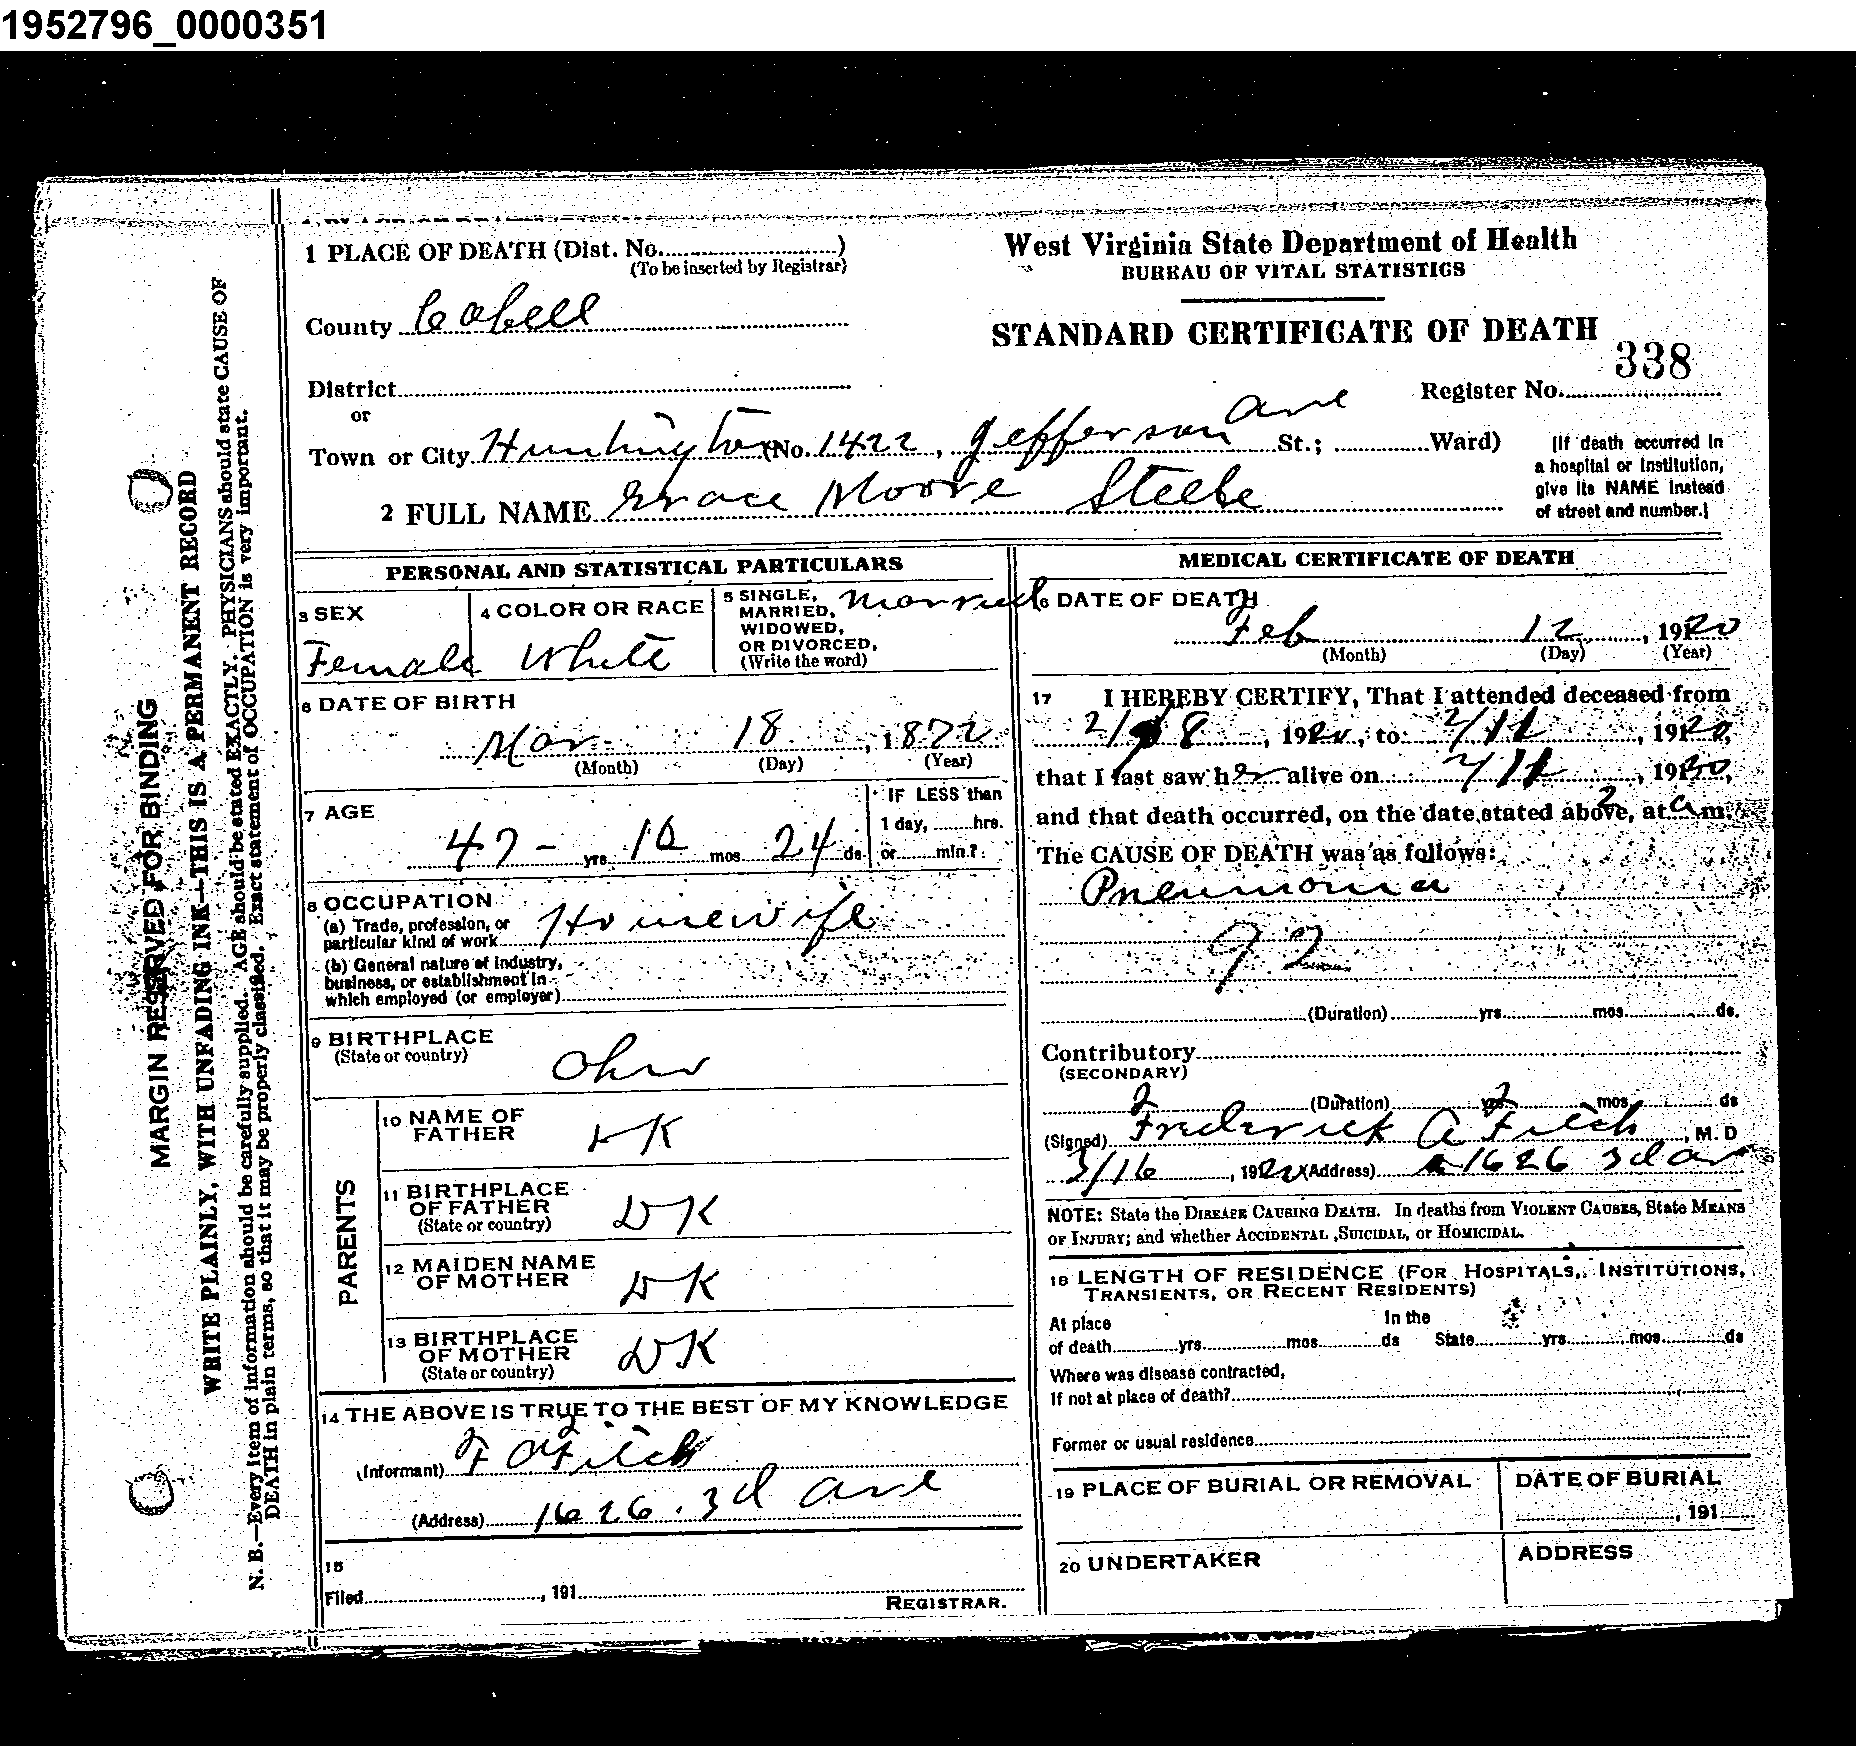 1952796_0000351
1 PLACE OF DEATH (Dist. No. )
(To be inserted by Registrar)
County Cabell
District
or
Town or City Huntington (No. 1422, Jefferson Ave St.; Ward)
2 FULL NAME Grace Moore Steele
West Virginia State Department of Health
BUREAU OF VITAL STATISTICS
STANDARD CERTIFICATE OF DEATH
338
Register No.
(If death occurred in
a hospital or institution,
give its NAME instead
of street and number.)
MARGIN RESERVED FOR BINDING
WRITE PLAINLY, WITH UNFADING INK—THIS IS A PERMANENT RECORD
N. B.—Every item of information should be carefully supplied. AGE should be stated EXACTLY. PHYSICIANS should state CAUSE OF
DEATH in plain terms, so that it may be properly classified. Exact statement of OCCUPATION is very important.
PERSONAL AND STATISTICAL PARTICULARS
3 SEX
Female
4 COLOR OR RACE
White
5 SINGLE,
MARRIED,
WIDOWED,
OR DIVORCED,
(Write the word)
Married
6 DATE OF BIRTH
Mar 18, 1872
(Month) (Day) (Year)
7 AGE
47 - yrs. 10 mos. 24 ds
IF LESS than
1 day, hrs.
or min.?
8 OCCUPATION
(a) Trade, profession, or
particular kind of work Housewife
(b) General nature of industry,
business, or establishment in
which employed (or employer)
9 BIRTHPLACE
(State or country)
Ohio
PARENTS
10 NAME OF
FATHER
DK
11 BIRTHPLACE
OF FATHER
(State or country)
DK
12 MAIDEN NAME
OF MOTHER
DK
13 BIRTHPLACE
OF MOTHER
(State or country)
DK
14 THE ABOVE IS TRUE TO THE BEST OF MY KNOWLEDGE
(Informant) F A Fitch
(Address) 1626 . 3d Ave
15
Filed , 191
REGISTRAR.
MEDICAL CERTIFICATE OF DEATH
16 DATE OF DEATH
Feb 12, 1920
(Month) (Day) (Year)
17 I HEREBY CERTIFY, That I attended deceased from
2/8, 1920, to 2/12, 1920,
that I last saw her alive on 2/12, 1920,
and that death occurred, on the date stated above, at 2 a m.
The CAUSE OF DEATH was as follows:
Pneumonia
92
(Duration) yrs. mos. ds.
Contributory
(SECONDARY)
(Duration) yrs. mos. ds
(Signed) Frederick A Fitch, M. D
3/16, 1920 (Address) 1626 3d av
NOTE: State the DISEASE CAUSING DEATH. In deaths from VIOLENT CAUSES, State MEANS
OF INJURY; and whether ACCIDENTAL, SUICIDAL, or HOMICIDAL.
18 LENGTH OF RESIDENCE (FOR HOSPITALS, INSTITUTIONS,
TRANSIENTS, OR RECENT RESIDENTS)
At place In the
of death yrs. mos. ds State yrs. mos. ds
Where was disease contracted,
If not at place of death?
Former or usual residence
19 PLACE OF BURIAL OR REMOVAL
DATE OF BURIAL
, 191
20 UNDERTAKER
ADDRESS